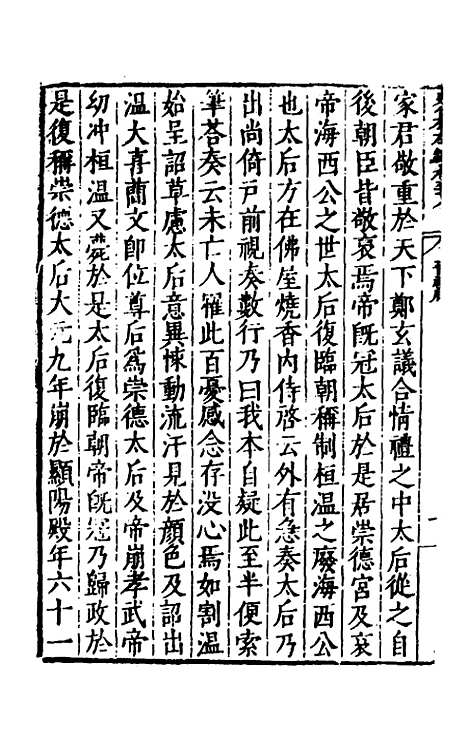 家君敬重於天下鄭玄議合情禮之中太后從之自
後朝臣皆敬哀焉帝既冠太后於是居崇德宮及哀
帝海西公之世太后復臨朝稱制桓温之廢海西公
也太后方在佛屋燒香内侍啓云外有急奏太后乃
出尚倚戸前視奏數行乃曰我本自疑此至半便索
筆荅奏云未亡人罹此百憂感念存没心焉如割温
始呈詔草慮太后意異悚動流汗見於顔色及詔出
温大喜蕳文即位尊后爲崇德太后及帝崩孝武帝
幼冲桓温又薨於是太后復臨朝帝既冠乃歸政於
是復稱崇德太后大元九年崩於顯陽殿年六十一